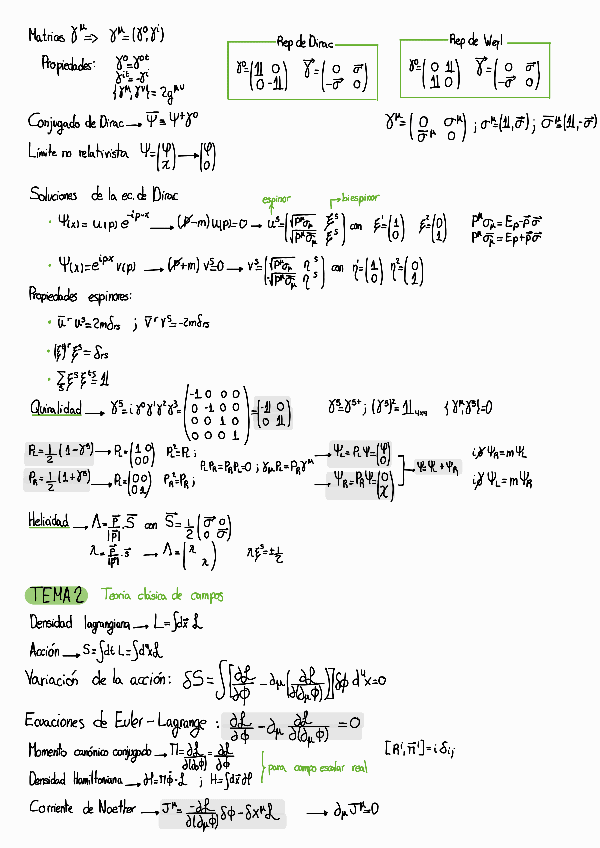 Matrices γ^μ => γ^μ = (γ⁰, γⁱ)
Propiedades: γ⁰ = γ⁰ᵗ
γⁱᵗ = -γⁱ
{γ^μ, γ^ν} = 2g^μν
Rep de Dirac
γ⁰ = (𝟙 0; 0 -𝟙) γ⃗ = (0 σ⃗; -σ⃗ 0)
Rep de Weyl
γ⁰ = (0 𝟙; 𝟙 0) γ⃗ = (0 σ⃗; -σ⃗ 0)
Conjugado de Dirac → Ψ̄ = Ψ⁺γ⁰
γ^μ = (0 σ^μ; σ̄^μ 0) ; σ^μ = (𝟙, σ⃗) ; σ̄^μ = (𝟙, -σ⃗)
Límite no relativista Ψ = (φ; χ) → (φ; 0)
Soluciones de la ec. de Dirac
espinor biespinor
• Ψ(x) = u(p) e^{-ip·x} → (p̸ - m) u(p) = 0 → uˢ = (√p^μσ_μ ξˢ; √p^μσ̄_μ ξˢ) con ξ¹ = (1; 0) ξ² = (0; 1) p^μσ_μ = Ep - p⃗σ⃗
p^μσ̄_μ = Ep + p⃗σ⃗
• Ψ(x) = e^{ipx} v(p) → (p̸ + m) vˢ = 0 → vˢ = (√p^μσ_μ ηˢ; √p^μσ̄_μ ηˢ) con η¹ = (1; 0) η² = (0; 1)
Propiedades espinores:
• ūʳ uˢ = 2mδrs ; v̄ʳ vˢ = -2mδrs
• (ξ⁺)ʳ ξˢ = δrs
• Σₛ ξˢ ξ⁺ˢ = 𝟙
Quiralidad → γ⁵ = i γ⁰γ¹γ²γ³ = (-1 0 0 0; 0 -1 0 0; 0 0 1 0; 0 0 0 1) = (-𝟙 0; 0 𝟙) γ⁵ = γ⁵⁺ ; (γ⁵)² = 𝟙₄ₓ₄ {γ^μ, γ⁵} = 0
P_L = 1/2 (1 - γ⁵) → P_L = (1 0; 0 0) P_L² = P_L ; → Ψ_L = P_LΨ = (φ; 0) i∂̸Ψ_R = mΨ_L
P_L P_R = P_R P_L = 0 ; γ_μ P_L = P_R γ^μ Ψ = Ψ_L + Ψ_R
P_R = 1/2 (1 + γ⁵) → P_R = (0 0; 0 1) P_R² = P_R ; → Ψ_R = P_RΨ = (0; χ) i∂̸Ψ_L = mΨ_R
Helicidad → Λ = p⃗/|p⃗| · S⃗ con S⃗ = 1/2 (σ⃗ 0; 0 σ⃗)
λ = p⃗/|p⃗| · s⃗ → Λ = (λ; λ) λξˢ = ±1/2
TEMA 2 Teoría clásica de campos
Densidad lagrangiana → L = ∫dx⃗ ℒ
Acción → S = ∫dt L = ∫d⁴x ℒ
Variación de la acción: δS = ∫[∂ℒ/∂φ - ∂_μ(∂ℒ/∂(∂_μφ))] δφ d⁴x = 0
Ecuaciones de Euler-Lagrange : ∂ℒ/∂φ - ∂_μ ∂ℒ/∂(∂_μφ) = 0
Momento canónico conjugado → Π = ∂ℒ/∂(∂₀φ) = ∂ℒ/∂φ̇
para campo escalar real
[Rⁱ, π̄ʲ] = i δᵢⱼ
Densidad Hamiltoniana → ℋ = Πφ̇ - ℒ ; H = ∫dx⃗ ℋ
Corriente de Noether → J^μ = -∂ℒ/∂(∂_μφ) δφ - δx^μ ℒ → ∂_μ J^μ = 0